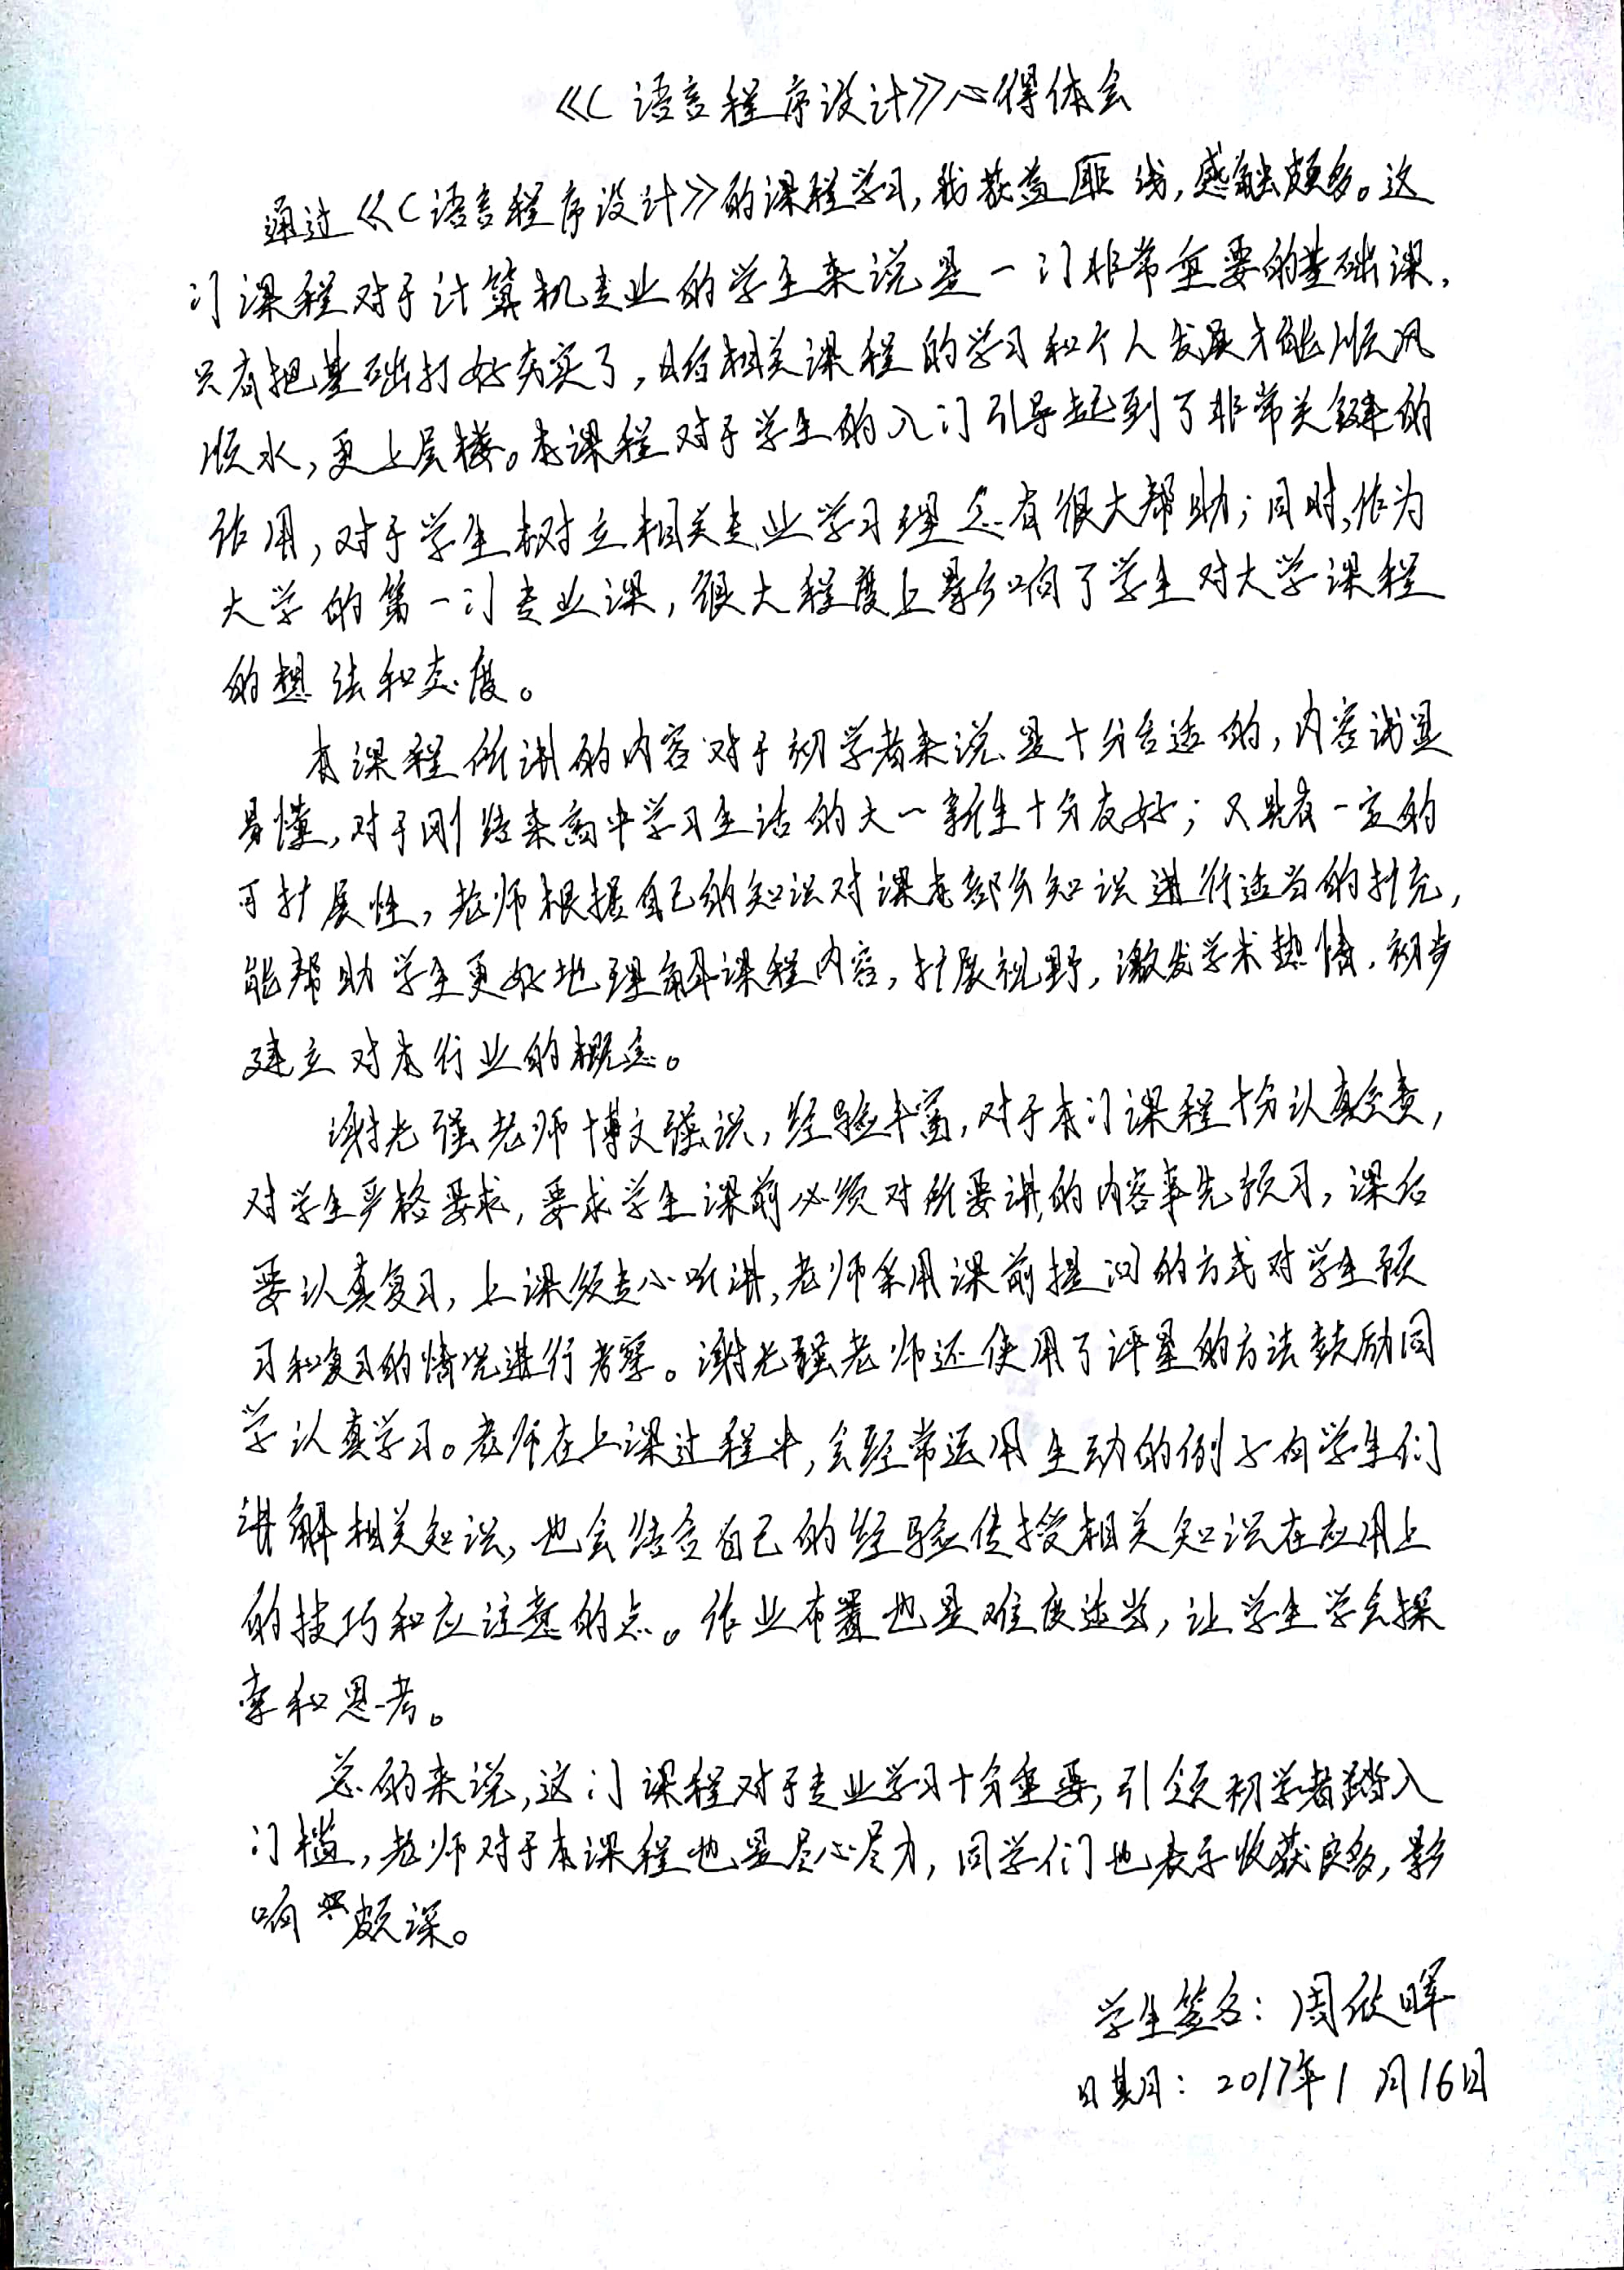 《C语言程序设计》心得体会
通过《C语言程序设计》的课程学习,我获益匪浅,感触颇多。这
门课程对于计算机专业的学生来说是一门非常重要的基础课,
只有把基础打好夯实了,日后相关课程的学习和个人发展才能顺风
顺水,更上层楼。本课程对于学生的入门引导起到了非常关键的
作用,对于学生树立相关专业学习理念有很大帮助;同时,作为
大学的第一门专业课,很大程度上影响了学生对大学课程
的想法和态度。
本课程所讲的内容对于初学者来说是十分合适的,内容浅显
易懂,对于刚结束高中学习生活的大一新生十分友好;又具有一定的
可扩展性,老师根据自己的知识对课本部分知识进行适当的扩充,
能帮助学生更好地理解课程内容,扩展视野,激发学术热情,初步
建立对本行业的概念。
谢光强老师博文强识,经验丰富,对于本门课程十分认真负责,
对学生严格要求,要求学生课前必须对所要讲的内容事先预习,课后
要认真复习,上课须专心听讲,老师采用课前提问的方式对学生预
习和复习的情况进行考察。谢光强老师还使用了评星的方法鼓励同
学认真学习。老师在上课过程中,会经常运用生动的例子向学生们
讲解相关知识,也会结合自己的经验传授相关知识在应用上
的技巧和应注意的点。作业布置也是难度适当,让学生学会探
索和思考。
总的来说,这门课程对于专业学习十分重要,引领初学者踏入
门槛,老师对于本课程也是尽心尽力,同学们也表示收获良多,影
响颇深。
学生签名:周欣晖
日期:2017年1月16日